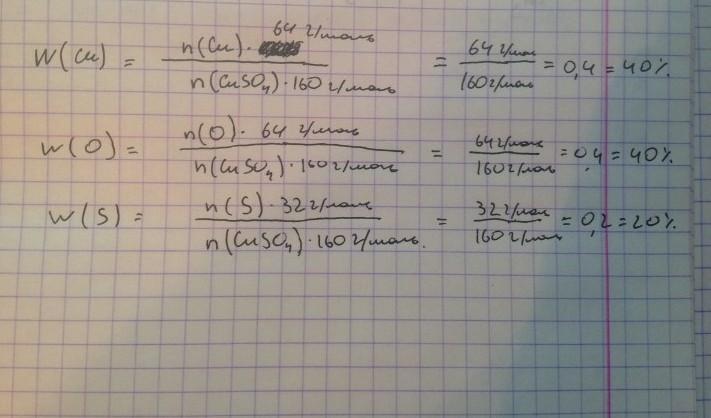 W(Cu) = n(Cu) · 64 г/моль / n(CuSO₄) · 160 г/моль = 64 г/мол / 160 г/мол = 0,4 = 40%.
W(O) = n(O) · 64 г/моль / n(CuSO₄) · 160 г/моль = 64 г/мол / 160 г/мол = 0,4 = 40%.
W(S) = n(S) · 32 г/моль / n(CuSO₄) · 160 г/моль. = 32 г/мол / 160 г/мол = 0,2 = 20%.